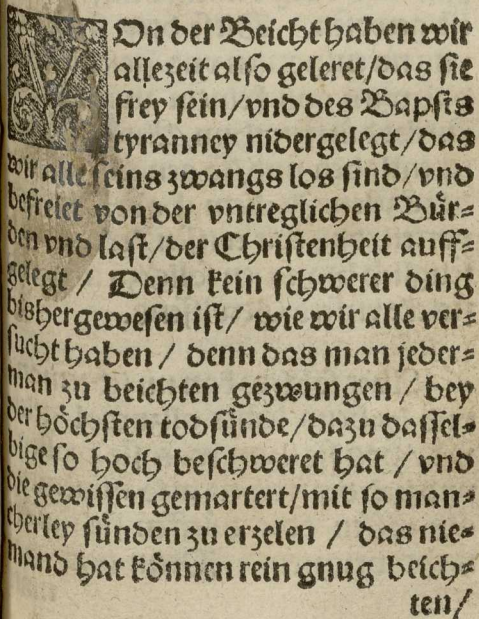 VOn der Beicht haben wir
allezeit also geleret/das sie
frey sein/vnd des Bapsts
tyranney nidergelegt/das
wir alle seins zwangs los sind/vnd
befreiet von der vntreglichen Bür⸗
den vnd last/der Christenheit auff⸗
gelegt / Denn kein schwerer ding
bishergewesen ist/ wie wir alle ver⸗
sucht haben / denn das man jeder⸗
man zu beichten gezwungen / bey
der höchsten todsünde/dazu dassel⸗
bige so hoch beschweret hat / vnd
die gewissen gemartert/mit so man⸗
cherley sünden zu erzelen / das nie⸗
mand hat können rein gnug beich⸗
ten/